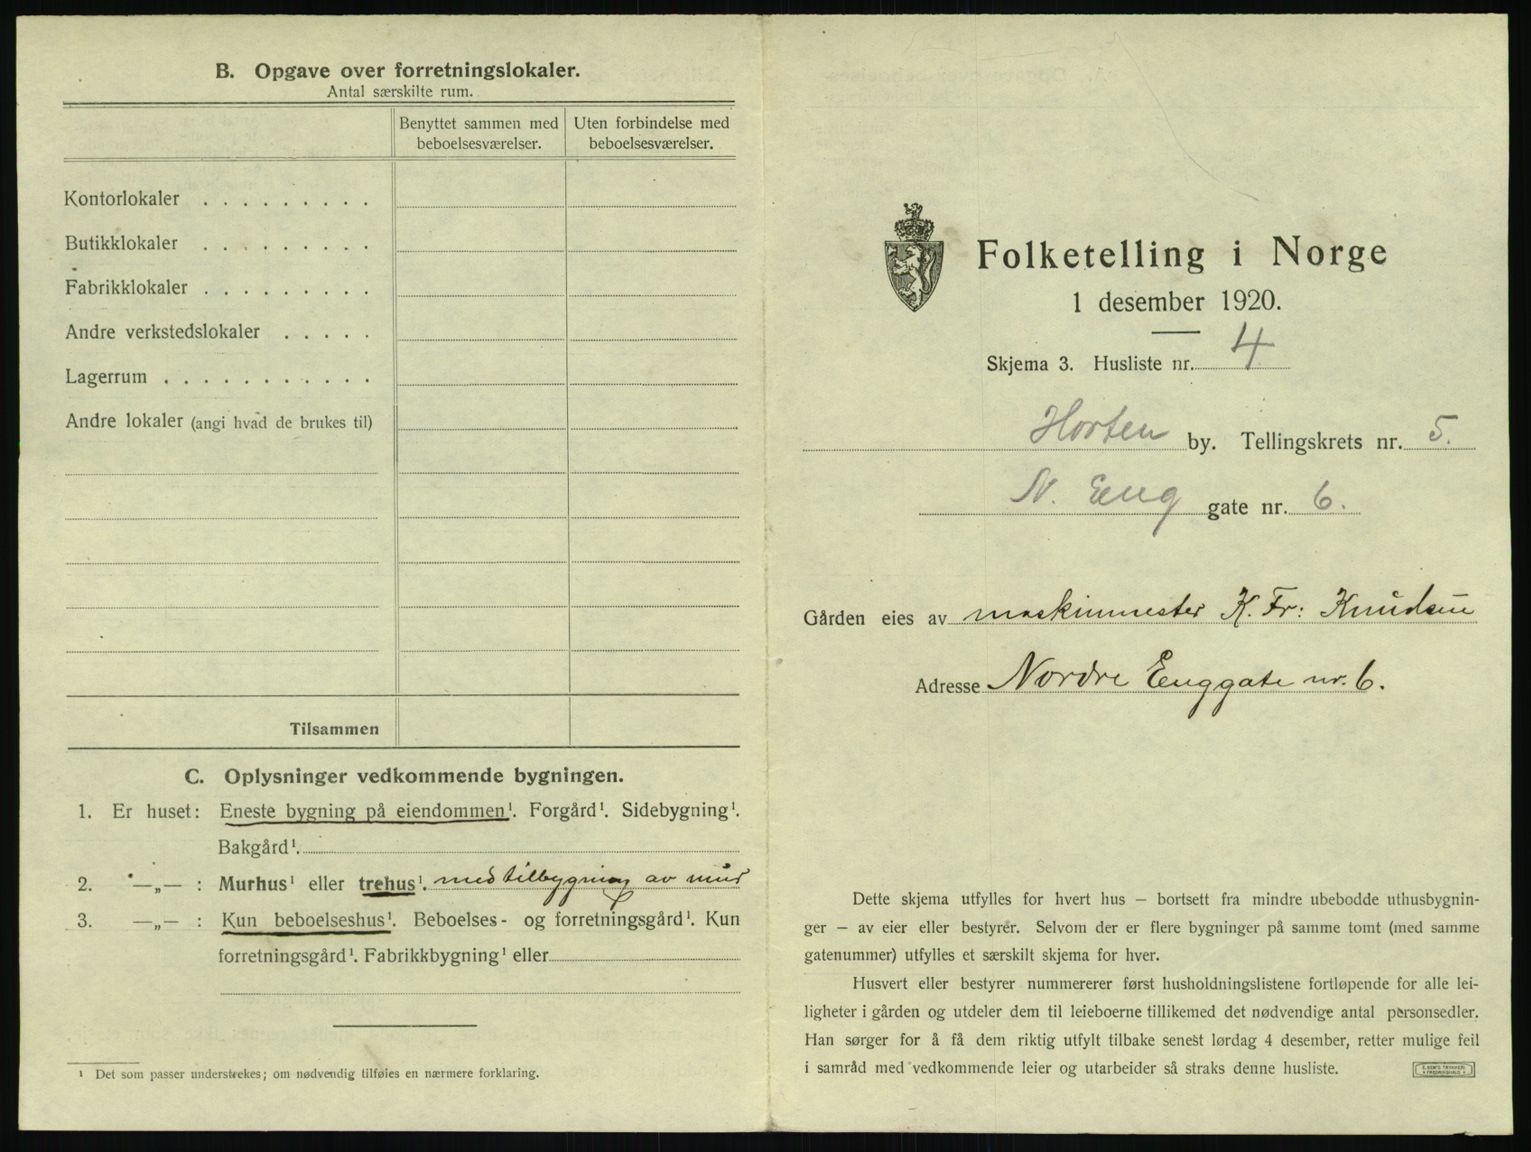 B. Opgave over forretningslokaler.
Antal særskilte rum.
Benyttet sammen med beboelsesværelser.
Uten forbindelse med beboelsesværelser.
Kontorlokaler . . . . . . . . .
Butikklokaler . . . . . . . . .
Fabrikklokaler . . . . . . . . .
Andre verkstedslokaler . . . . .
Lagerrum . . . . . . . . . . .
Andre lokaler (angi hvad de brukes til)
Tilsammen
C. Oplysninger vedkommende bygningen.
1. Er huset: Eneste bygning på eiendommen¹. Forgård¹. Sidebygning¹.
Bakgård¹.
2. —„— : Murhus¹ eller trehus¹. med tilbygning av mur
3. —„— : Kun beboelseshus¹. Beboelses- og forretningsgård¹. Kun
forretningsgård¹. Fabrikkbygning¹ eller
¹ Det som passer understrekes; om nødvendig tilføies en nærmere forklaring.
Folketelling i Norge
1 desember 1920.
Skjema 3. Husliste nr. 4
Horten by. Tellingskrets nr. 5.
N. Eng gate nr. 6.
Gården eies av maskinmester K. Fr: Knudsen
Adresse Nordre Enggate nr. 6.
Dette skjema utfylles for hvert hus — bortsett fra mindre ubebodde uthusbygnin-
ger — av eier eller bestyrer. Selvom der er flere bygninger på samme tomt (med samme
gatenummer) utfylles et særskilt skjema for hver.
Husvert eller bestyrer nummererer først husholdningslistene fortløpende for alle lei-
ligheter i gården og utdeler dem til leieboerne tillikemed det nødvendige antal personsedler.
Han sørger for å få dem riktig utfylt tilbake senest lørdag 4 desember, retter mulige feil
i samråd med vedkommende leier og utarbeider så straks denne husliste.